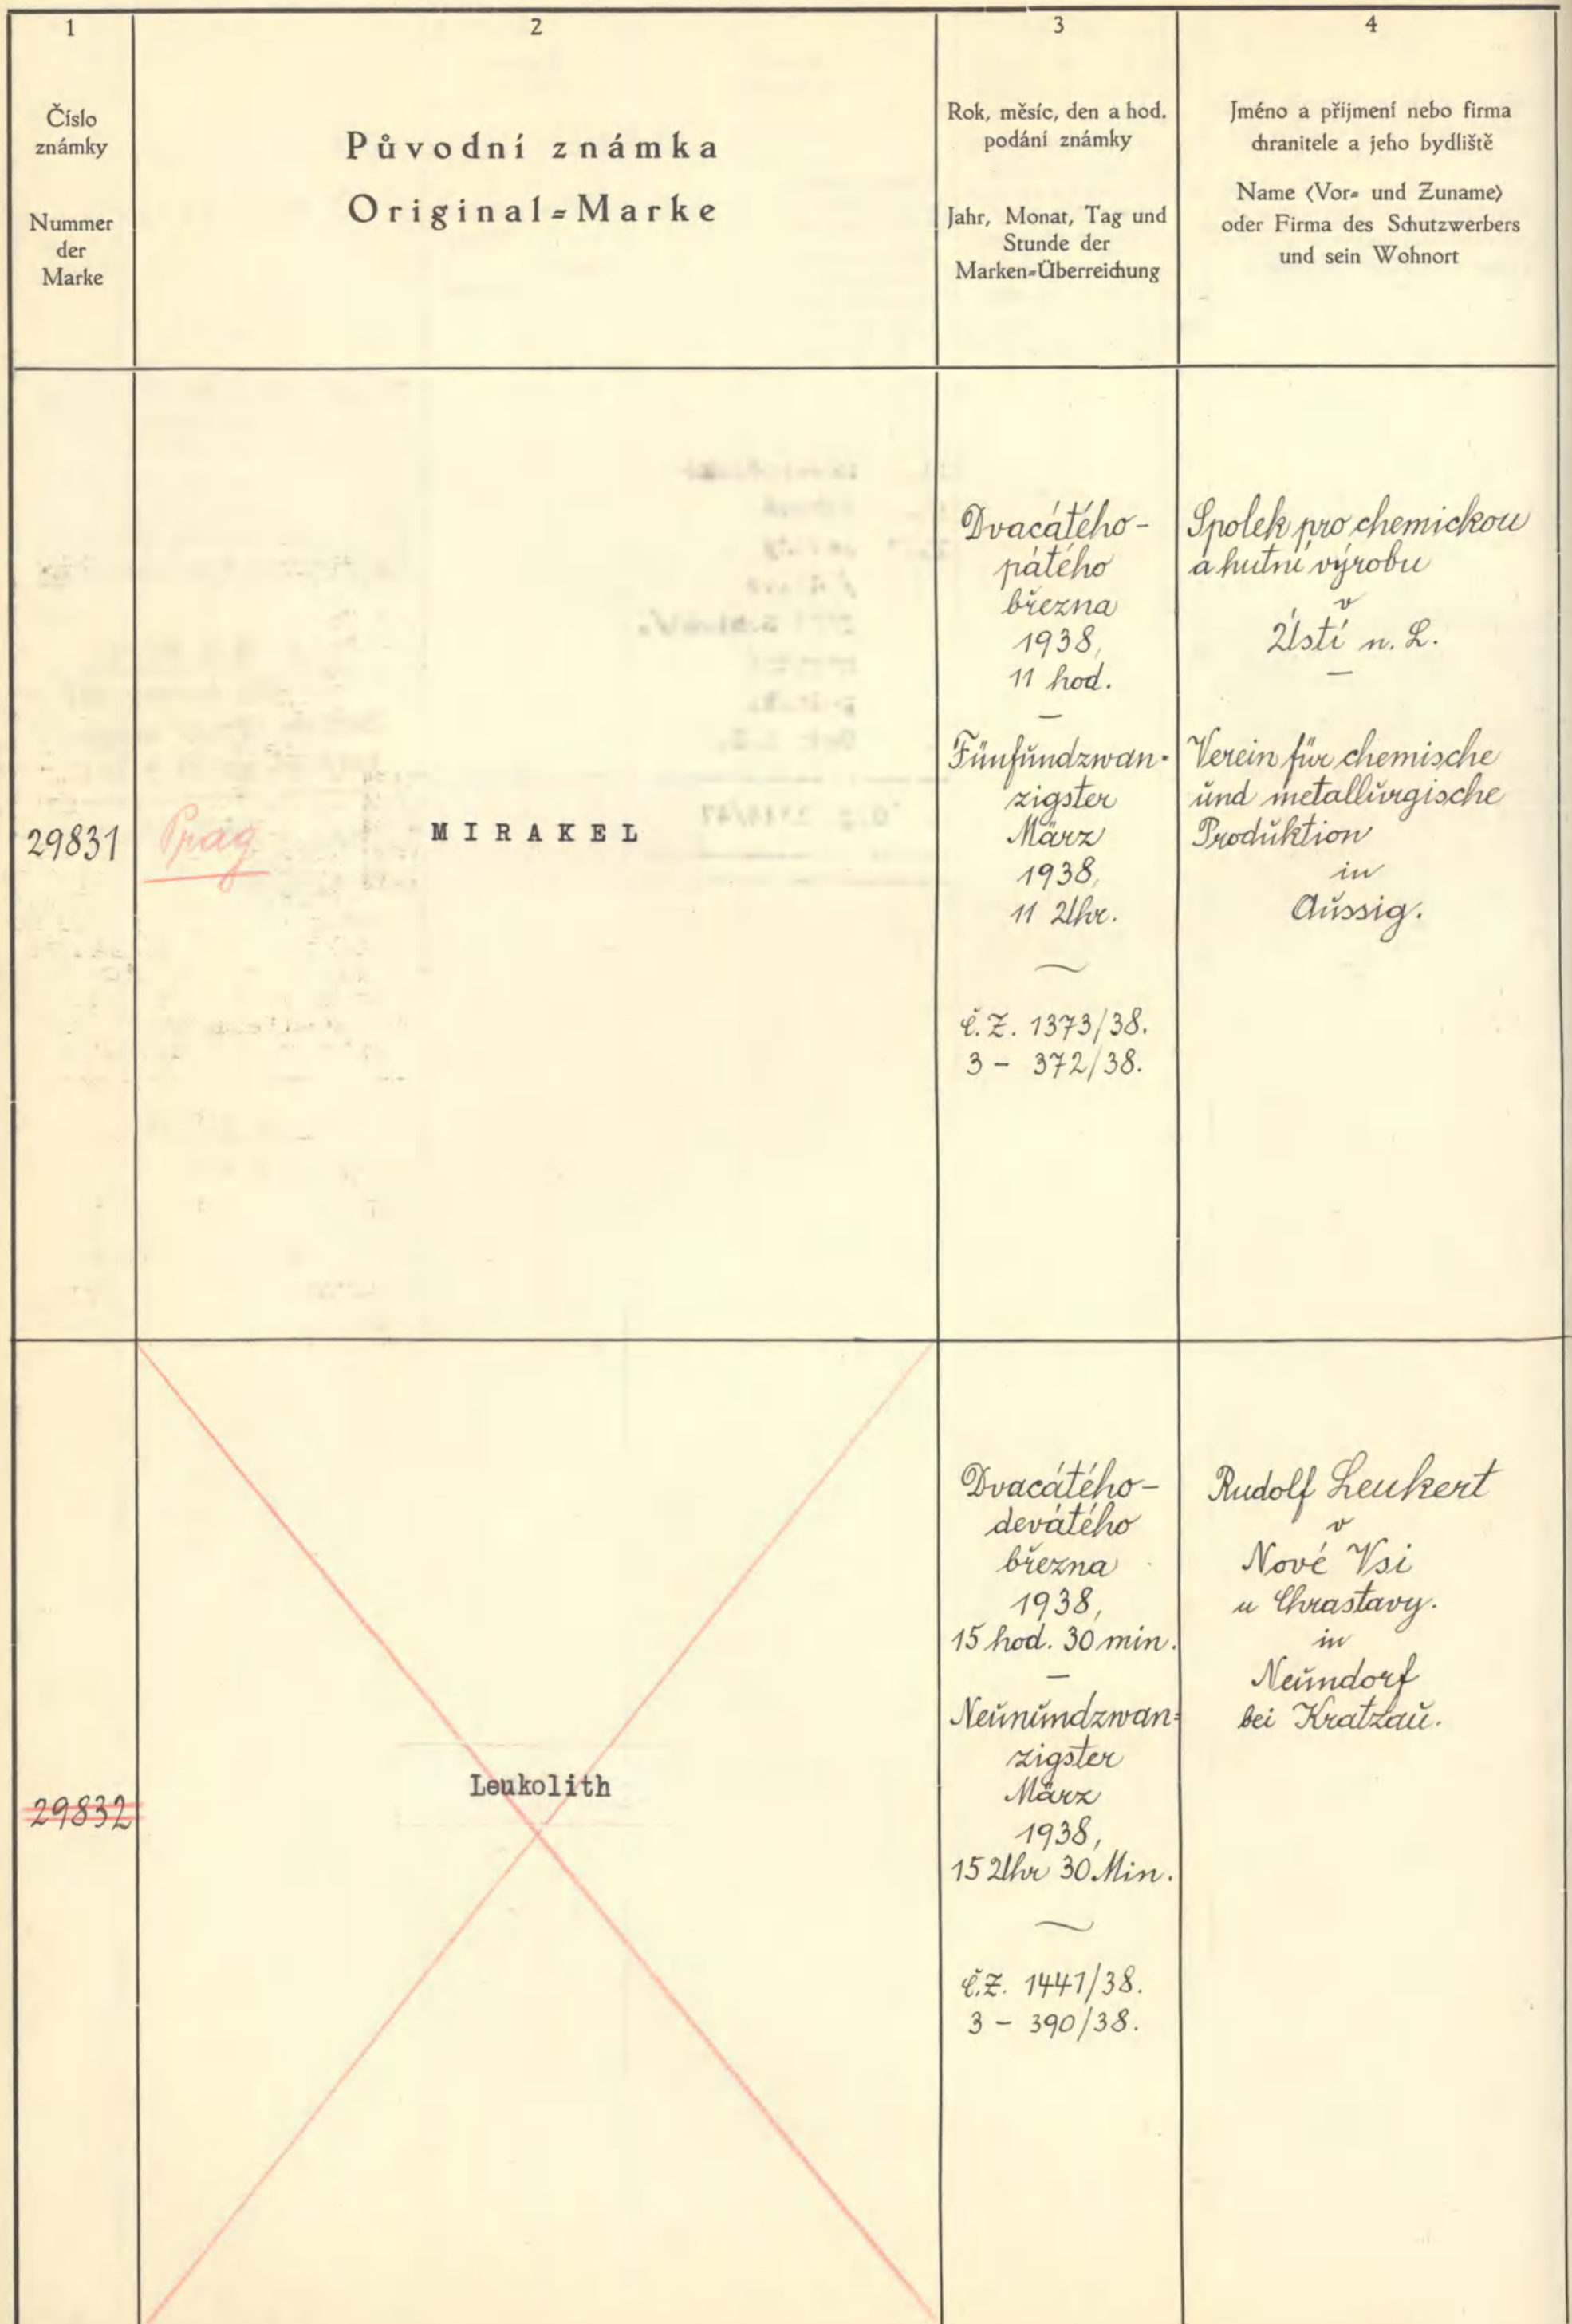 1
2
3
4
Číslo
známky
Nummer
der
Marke
Původní známka
Original=Marke
Rok, měsíc, den a hod.
podání známky
Jahr, Monat, Tag und
Stunde der
Marken=Überreichung
Jméno a přijmení nebo firma
chranitele a jeho bydliště
Name (Vor= und Zuname)
oder Firma des Schutzwerbers
und sein Wohnort
29831
Prag
MIRAKEL
Dvacátého-
pátého
března
1938,
11 hod.
—
Fünfundzwan-
zigster
März
1938,
11 Uhr.
č.Z. 1373/38.
3 - 372/38.
Spolek pro chemickou
a hutní výrobu
v
Ústí n. L.
—
Verein für chemische
und metallurgische
Produktion
in
Aussig.
29832
Leukolith
Dvacátého-
devátého
března
1938,
15 hod. 30 min.
—
Neunundzwan=
zigster
März
1938,
15 Uhr 30 Min.
č.Z. 1441/38.
3 - 390/38.
Rudolf Leukert
v
Nové Vsi
u Chrastavy.
in
Neundorf
bei Kratzau.